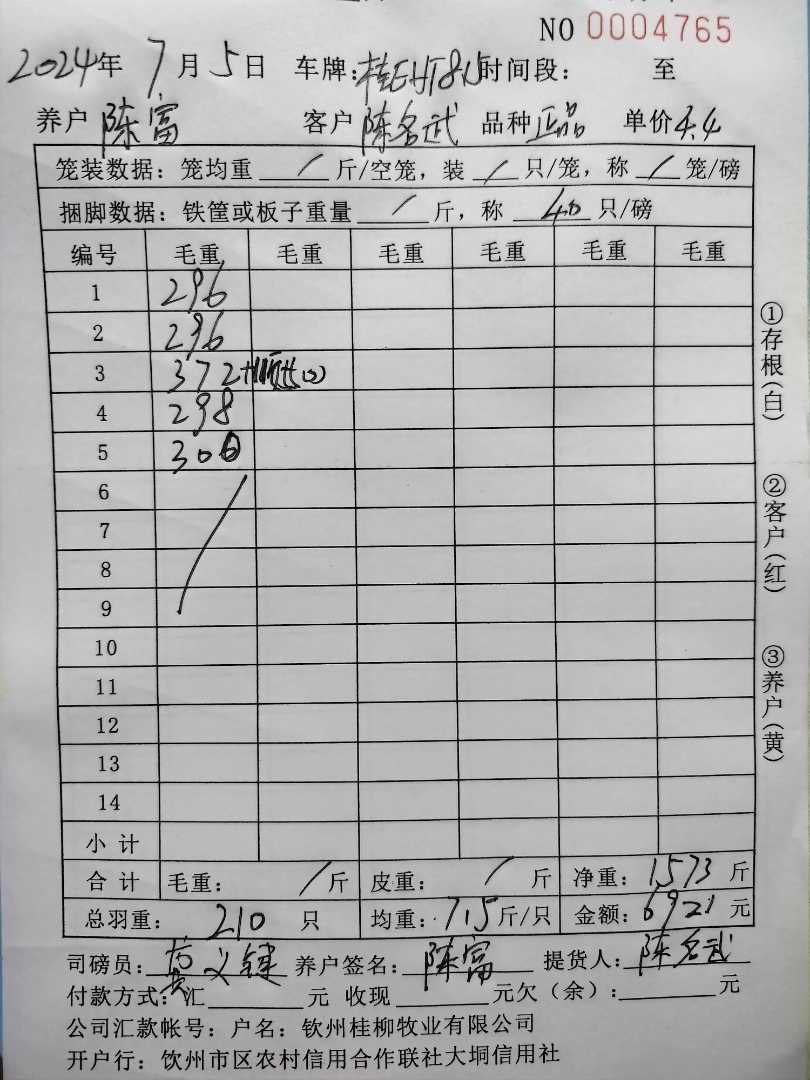 NO 0004765
2024年 7月5日 车牌: 时间段: 至
养户 陈富 客户 陈名武 品种 正品 单价 4.4
笼装数据: 笼均重 / 斤/空笼, 装 / 只/笼, 称 / 笼/磅
捆脚数据: 铁筐或板子重量 / 斤, 称 40 只/磅
编号 毛重 毛重 毛重 毛重 毛重 毛重
1 296
2 296
3 372
4 298
5 300
6
7
8
9
10
11
12
13
14
小 计
合 计 毛重: / 斤 皮重: / 斤 净重: 1573 斤
总羽重: 210 只 均重: 7.5 斤/只 金额: 6921 元
司磅员: 养户签名: 陈富 提货人: 陈名武
付款方式: 汇 元 收现 元欠(余): 元
公司汇款帐号: 户名: 钦州桂柳牧业有限公司
开户行: 饮州市区农村信用合作联社大垌信用社
①存根(白)
②客户(红)
③养户(黄)